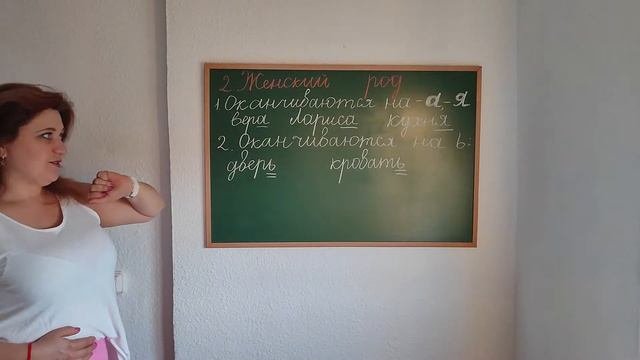 2. Женский род
1 Оканчиваются на -а, -я
вера лариса кухня
2. Оканчиваются на ь:
дверь кровать